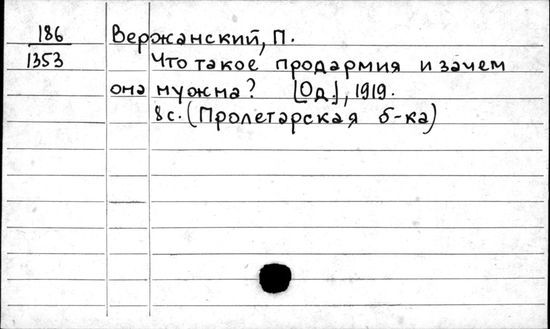 186 Вержанский, П.
1353 Что такое продармия и зачем
она нужна? [Од.], 1919.
8 с. (Пролетарская б-ка)